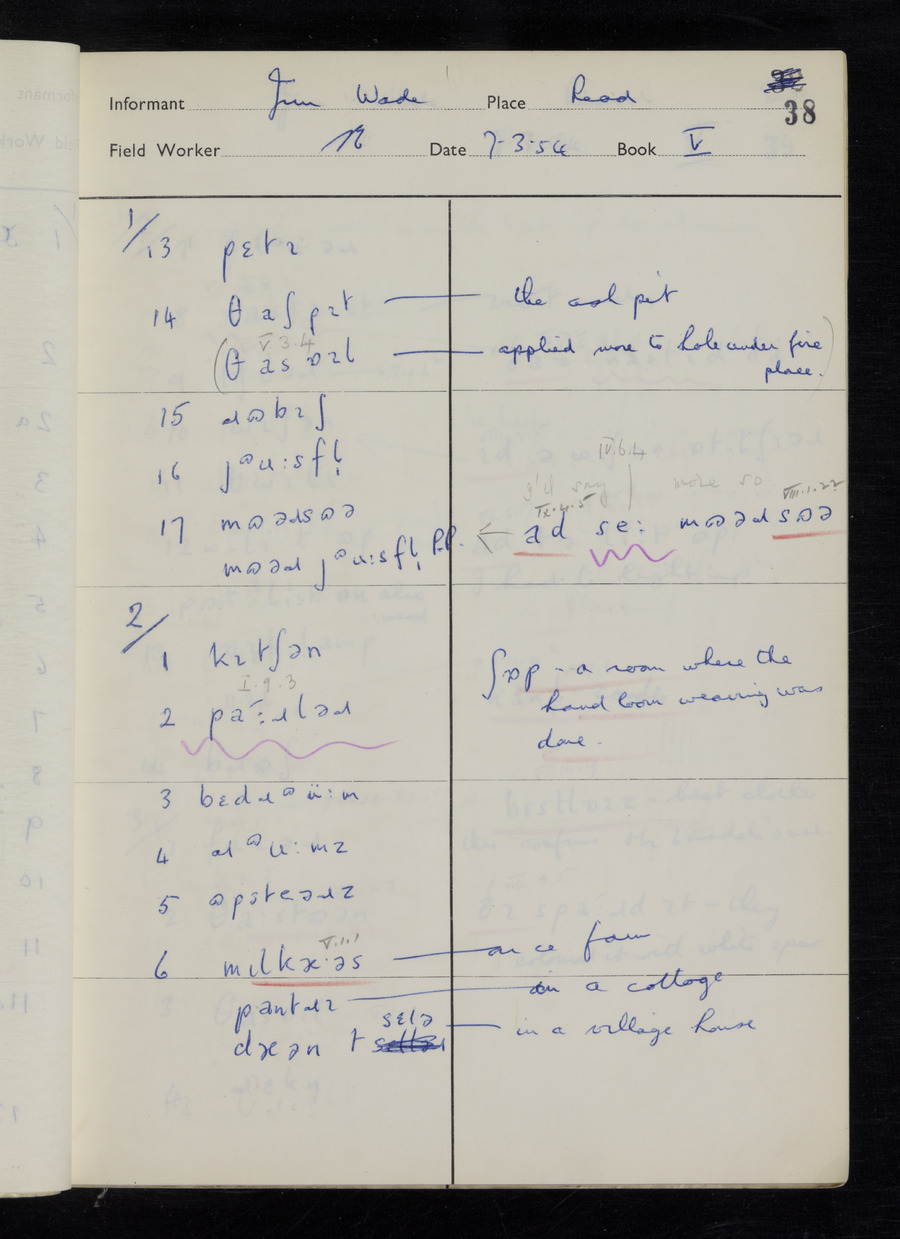 Informant Jim Wade Place Read 38
Field Worker Date 7-3-54 Book V
1/
13 pɛtɪ
14 θ aʃ pɪt — the ash pit
V.3.4
(θ as ɒɪl — applied more to hole under fire place.)
15 ɹɷbɪʃ
IV.6.4
16 jᶷu:sfl̩
I'd say | more so
IX.4.5 VIII.1.22
17 mɷəɹsɷə ← ad se: mɷəɹ sɷə
mɷəɹ jᶷu:sfl̩ p.p.
2/
1 kɪtʃən
I.9.3
2 pa:ɹləɹ
ʃɒp - a room where the
hand loom weaving was
done.
3 bɛdɹᶷü:m
4 ɹᶷu:mz
5 ɷpsteəɹz
V.1.1
6 mɪlkæ·əs — on a farm
pantɹɪ — in a cottage
sɛlə
dæən t — in a village house